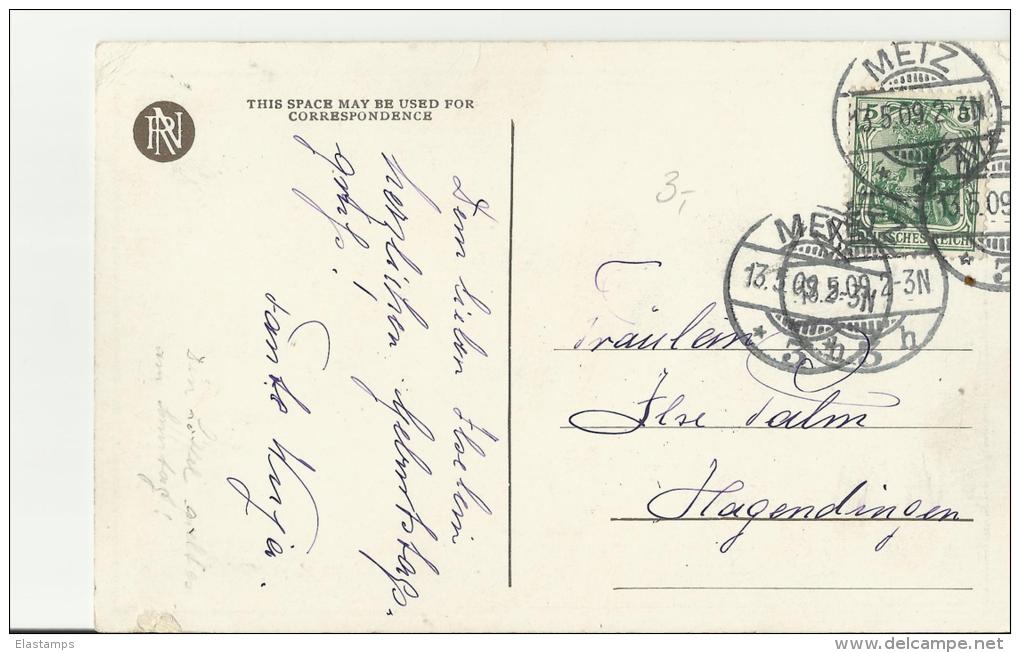 THIS SPACE MAY BE USED FOR
CORRESPONDENCE
RN
Dem lieben Ilselein
herzlichen Geburtstags-
gruß!
Tante
3,-
METZ
13.5.09.2-3N
METZ
13.5.09.2-3N
* 3 h
5
DEUTSCHES REICH
Fräulein
Ilse Palm
Hagendingen
Elastamps
delcampe.net